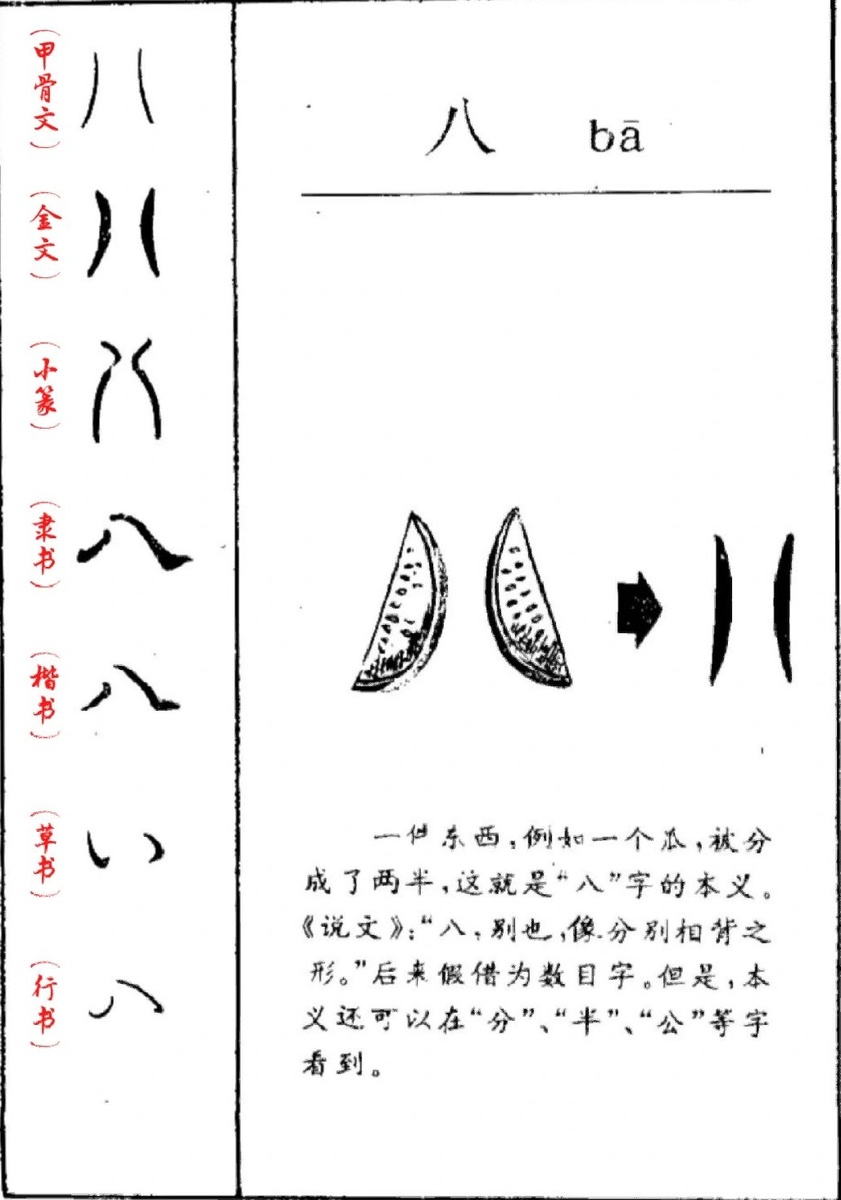 (甲骨文)
八
(金文)
八
(小篆)
八
(隶书)
八
(楷书)
八
(草书)
八
(行书)
八
八 bā
一件东西,例如一个瓜,被分
成了两半,这就是“八”字的本义。
《说文》:“八,别也,像分别相背之
形。”后来假借为数目字。但是,本
义还可以在“分”、“半”、“公”等字
看到。